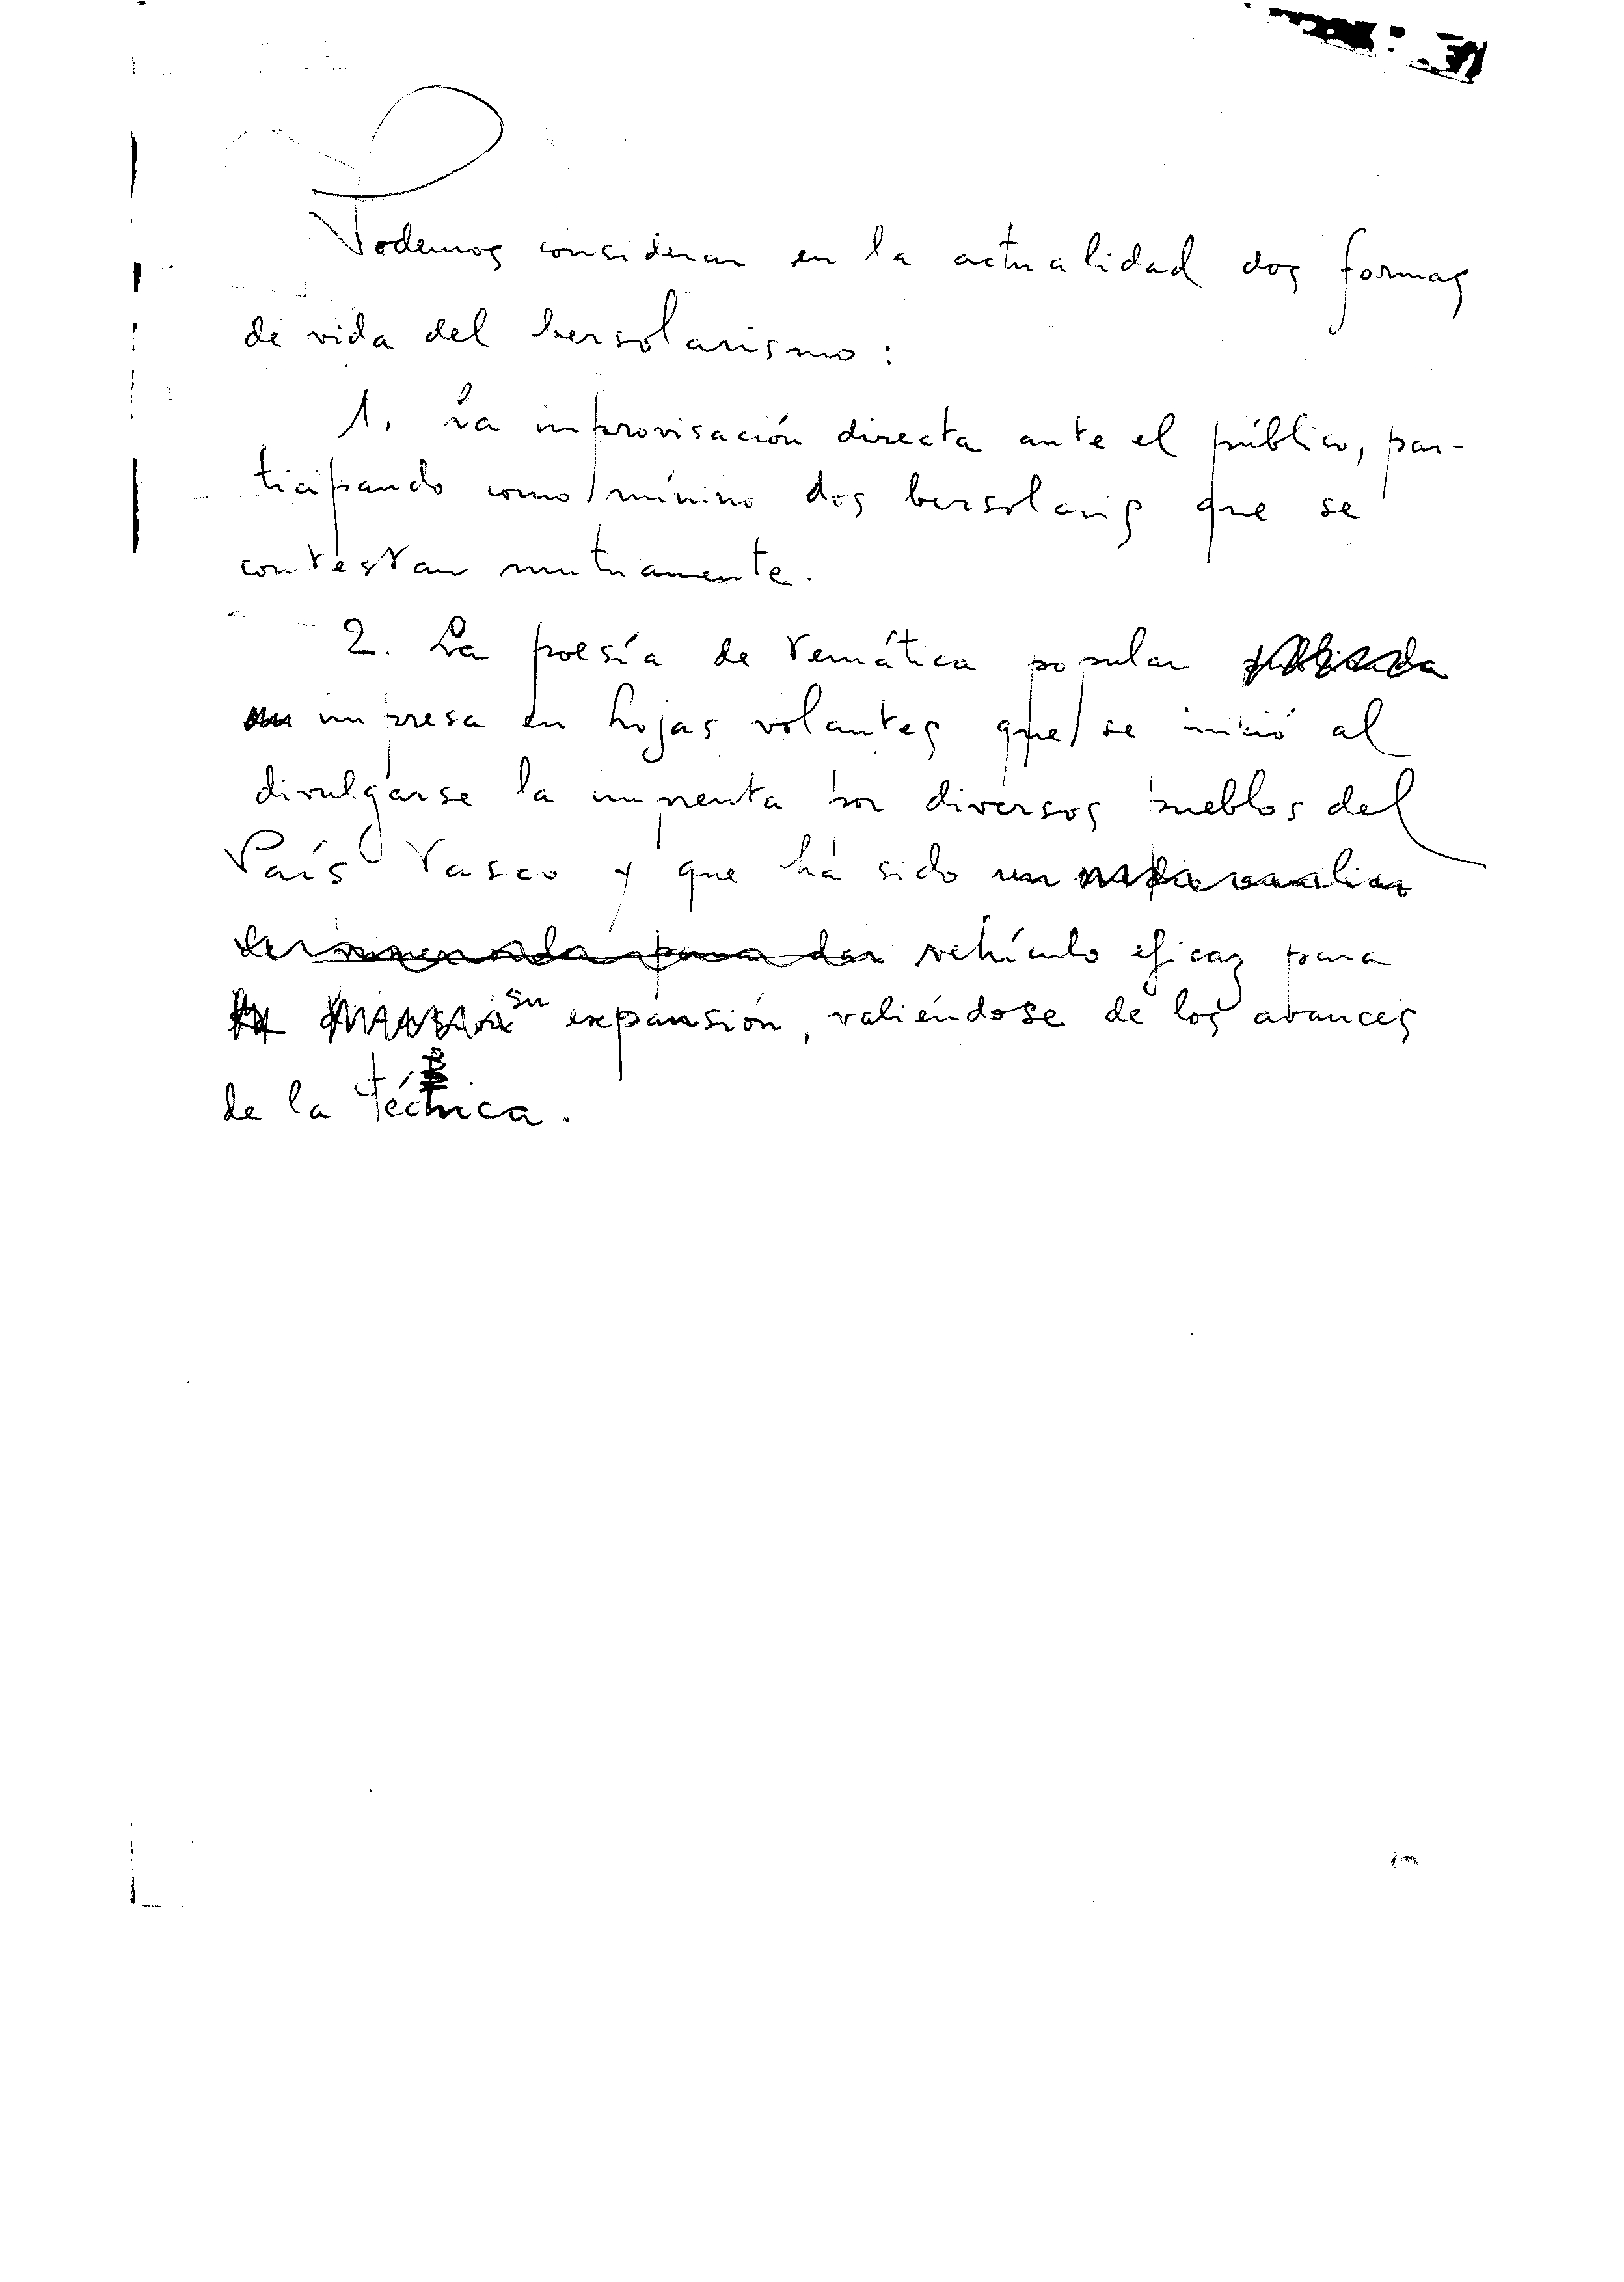 Podemos considerar en la actualidad dos formas
de vida del bersolarismo:
1. La improvisación directa ante el público, par-
ticipando como mínimo dos bersolaris que se
contestan mutuamente.
2. La poesía de temática popular publicada
impresa en hojas volantes que se inició al
divulgarse la imprenta por diversos pueblos del
País Vasco y que ha sido un
vehículo eficaz para
su expansión, valiéndose de los avances
de la técnica.